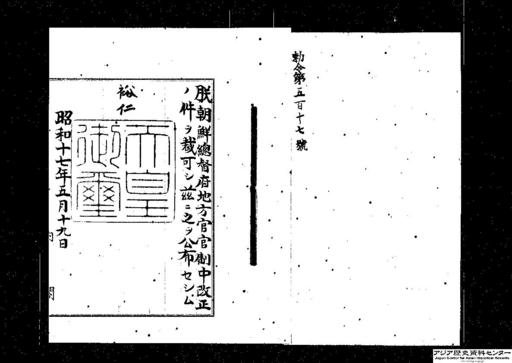 勅令第五百十七號
朕朝鮮總督府地方官官制中改正
ノ件ヲ裁可シ茲ニ之ヲ公布セシム
裕仁
天皇
御璽
昭和十七年五月十九日
アジア歴史資料センター
Japan Center for Asian Historical Records